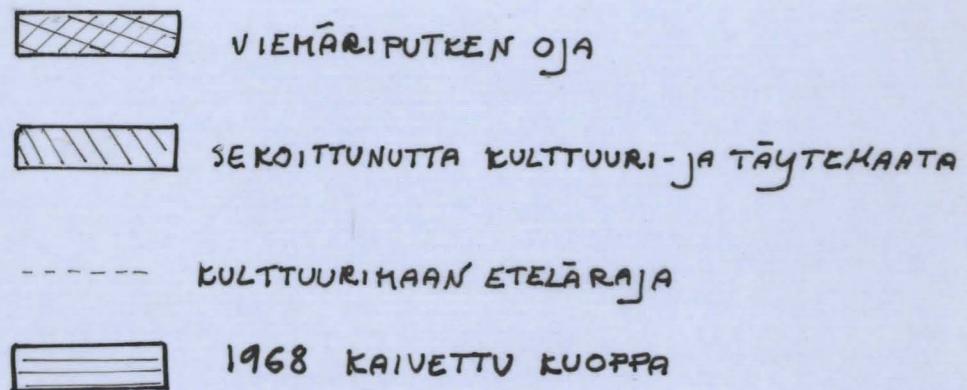 VIEMÄRIPUTKEN OJA
SEKOITTUNUTTA KULTTUURI- JA TÄYTEMAATA
KULTTUURIMAAN ETELÄRAJA
1968 KAIVETTU KUOPPA